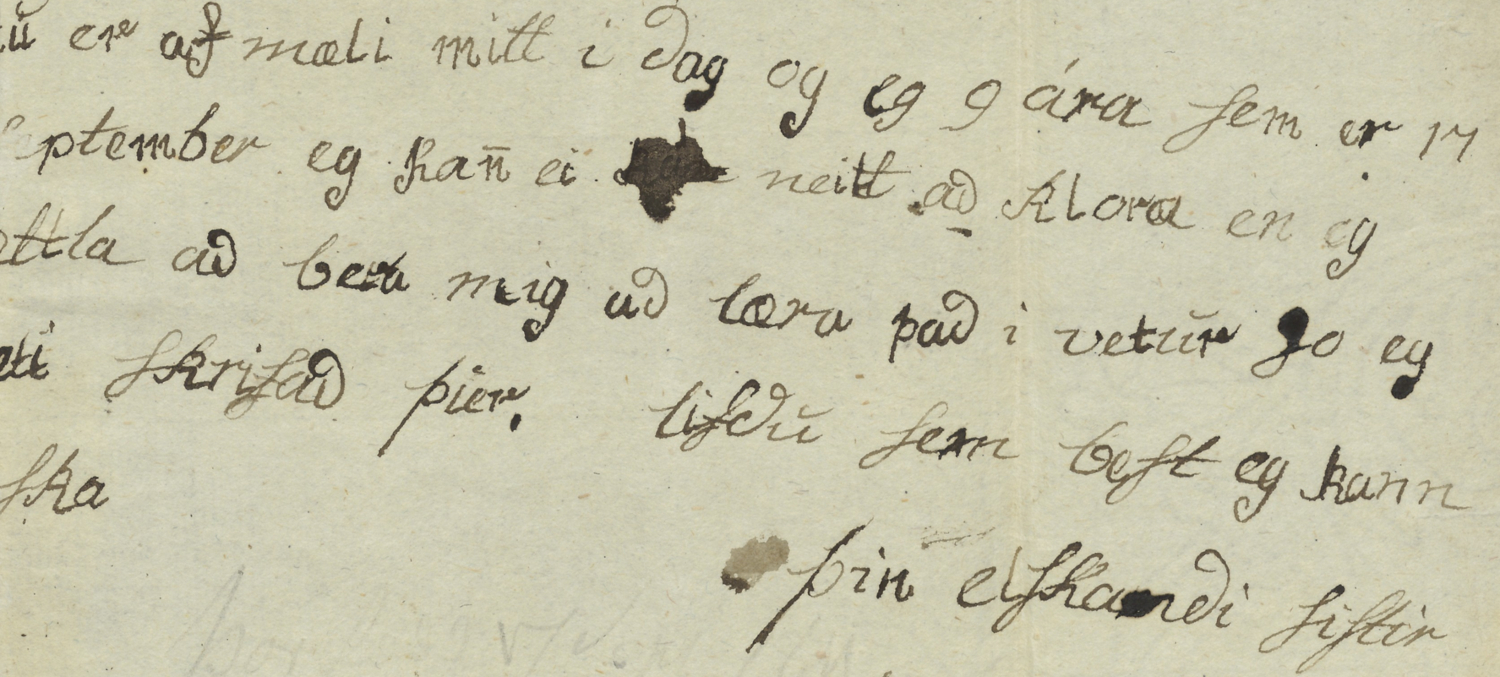 nu er af mæli mitt i dag og eg 9 ára sem er 17
September eg kan̄ ei neitt ad klora en eg
ættla ad bera mig ad læra þad i vetur so eg
geti skrifad þier. lifdu sem best eg kann
ska
þin elskandi sistir